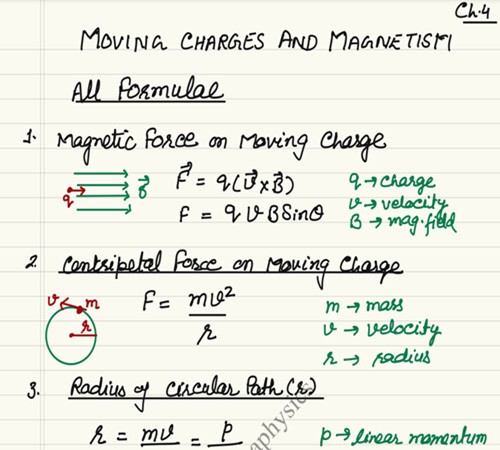 Ch.4
MOVING CHARGES AND MAGNETISM
All Formulae
1. Magnetic Force on Moving Charge
q B⃗ F⃗ = q(V⃗ × B⃗) q → charge
F = qVBSinθ V → velocity
B → mag. field
2. Centripetal Force on Moving Charge
v m F = mv²/r m → mass
r v → velocity
r → radius
3. Radius of Circular Path (r)
r = mv = p p → linear momentum
aphysics